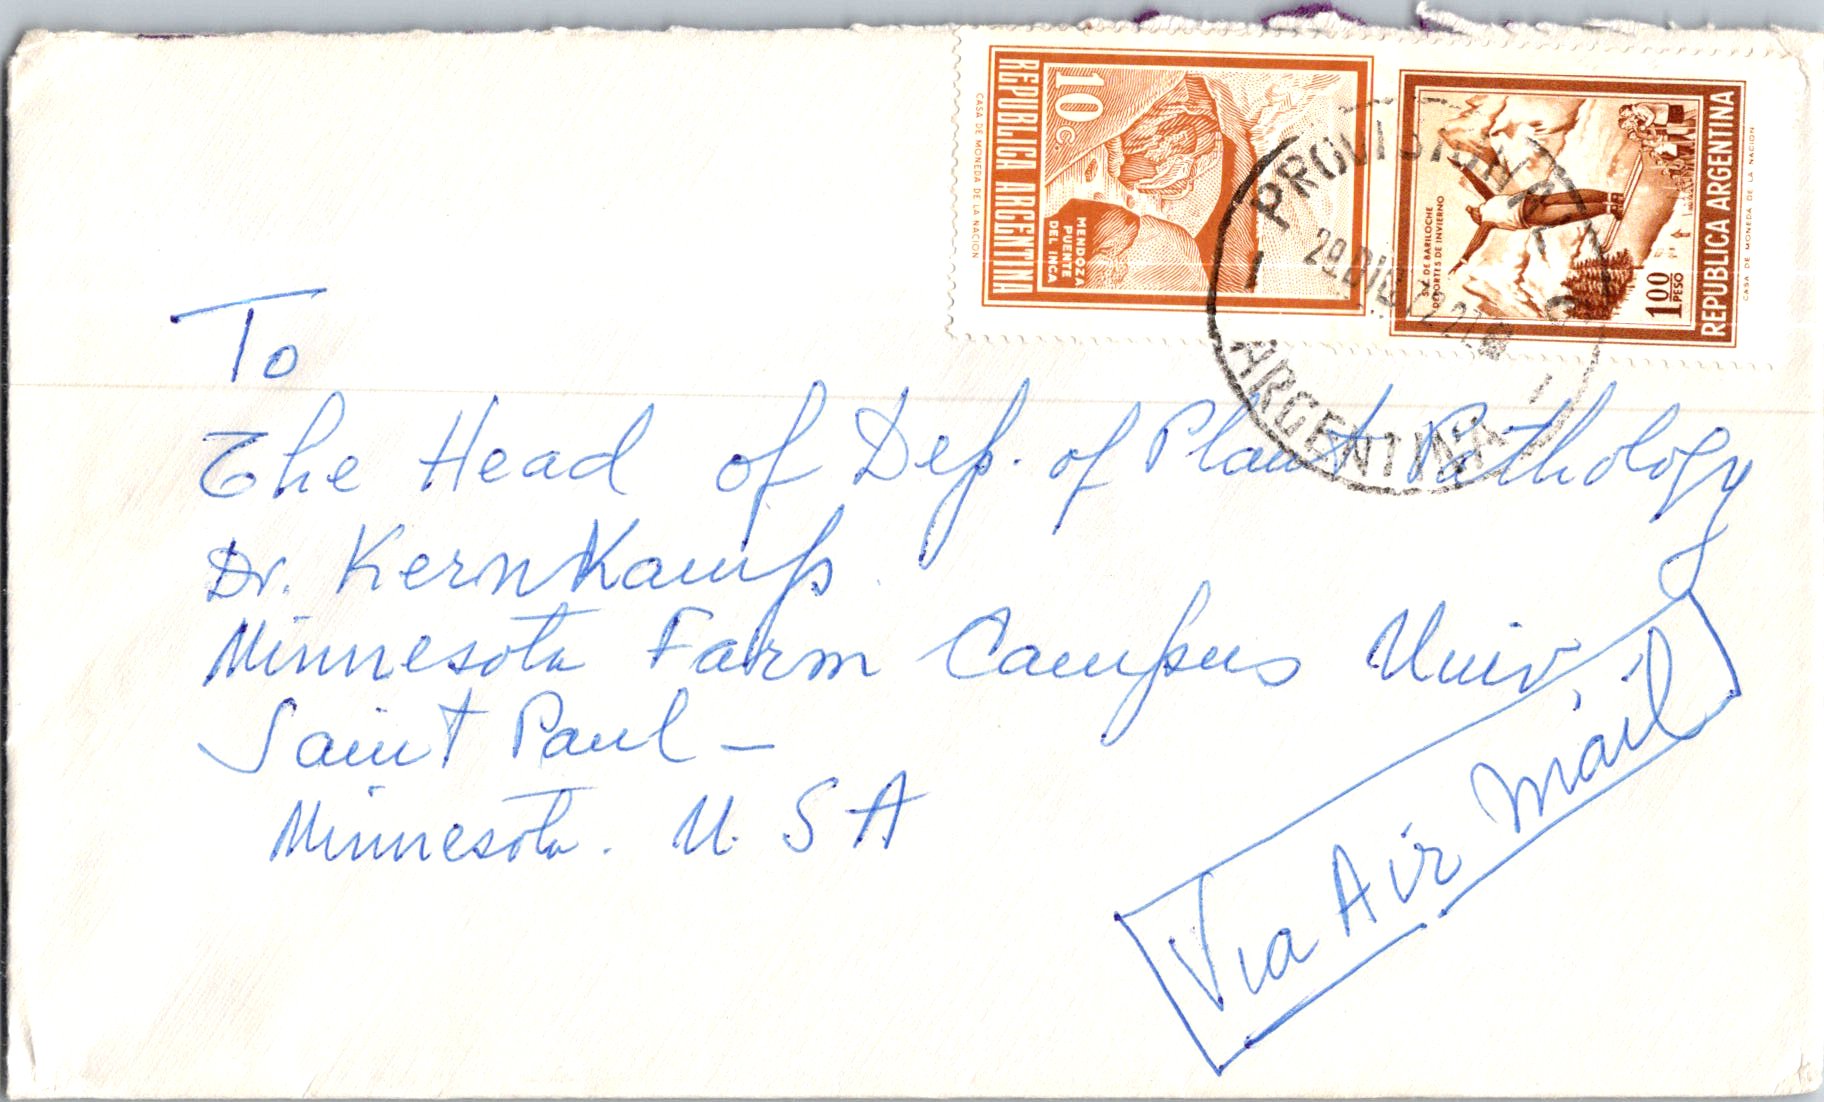 10 C.
REPUBLICA ARGENTINA
MENDOZA
PUENTE
DEL INCA
CASA DE MONEDA DE LA NACION
S. C. DE BARILOCHE
DEPORTES DE INVIERNO
1 00
PESO
REPUBLICA ARGENTINA
CASA DE MONEDA DE LA NACION
29.DIC
ARGENTINA
To
The Head of Dep. of Plant Pathology
Dr. KernKamp
Minnesota Farm Campus Univ
Saint Paul -
Minnesota. U. S A
Via Air Mail